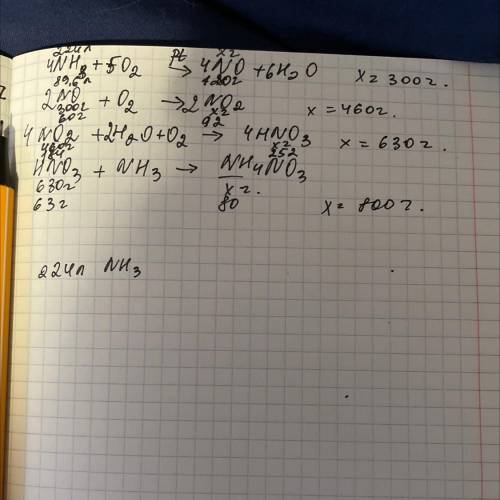 224л xг
4NH3 + 5O2 Pt → 4NO + 6H2O x = 300г.
89,6л 120г
2NO + O2 → 2NO2 x = 460г.
300г xг
60г 92
4NO2 + 2H2O + O2 → 4HNO3 x = 630г.
460г xг
184 252
HNO3 + NH3 → NH4NO3
630г xг.
63г 80 x = 800г.
224л NH3